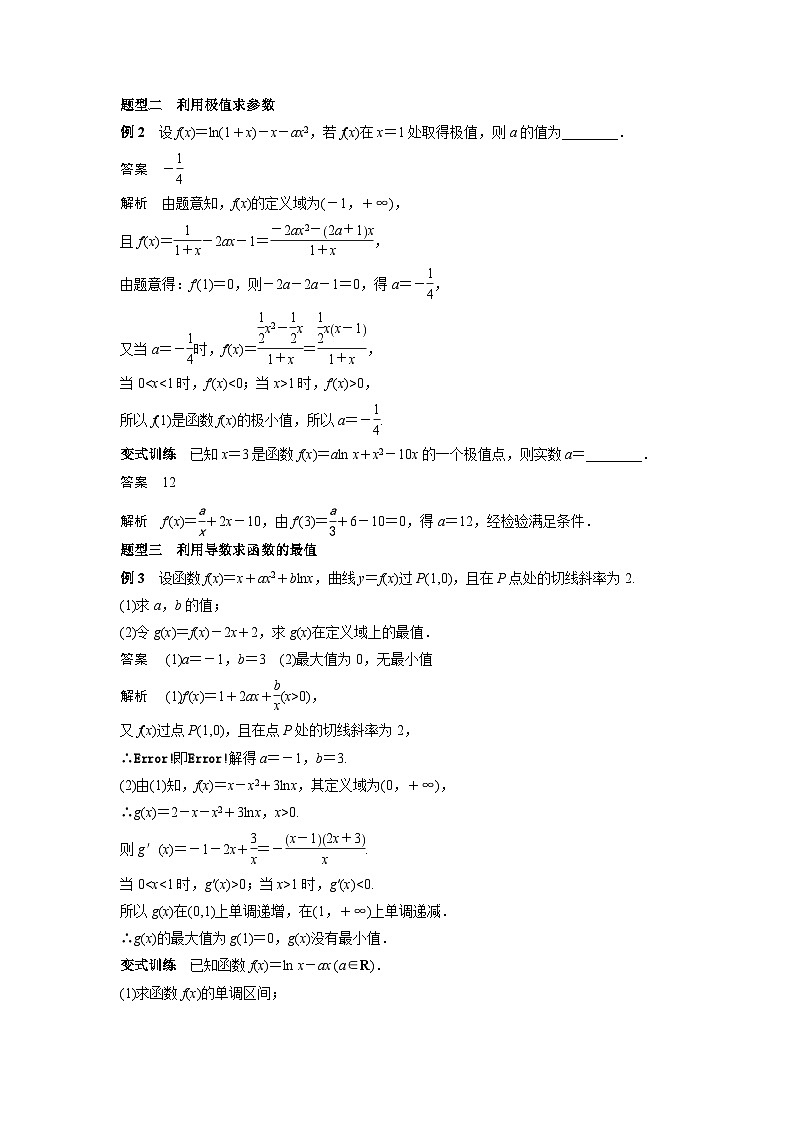 题型二　利用极值求参数
例2　设f(x)=ln(1+x)-x-ax²,若f(x)在x=1处取得极值,则a的值为________.
答案　-1/4
解析　由题意知,f(x)的定义域为(-1,+∞),
且f′(x)=1/(1+x)-2ax-1=(-2ax²-(2a+1)x)/(1+x),
由题意得:f′(1)=0,则-2a-2a-1=0,得a=-1/4,
又当a=-1/4时,f′(x)=(1/2x²-1/2x)/(1+x)=(1/2x(x-1))/(1+x),
当0<x<1时,f′(x)<0;当x>1时,f′(x)>0,
所以f(1)是函数f(x)的极小值,所以a=-1/4.
变式训练　已知x=3是函数f(x)=aln x+x²-10x的一个极值点,则实数a=________.
答案　12
解析　f′(x)=a/x+2x-10,由f′(3)=a/3+6-10=0,得a=12,经检验满足条件.
题型三　利用导数求函数的最值
例3　设函数f(x)=x+ax²+blnx,曲线y=f(x)过P(1,0),且在P点处的切线斜率为2.
(1)求a,b的值;
(2)令g(x)=f(x)-2x+2,求g(x)在定义域上的最值.
答案　(1)a=-1,b=3　(2)最大值为0,无最小值
解析　(1)f′(x)=1+2ax+b/x(x>0),
又f(x)过点P(1,0),且在点P处的切线斜率为2,
∴Error!即Error!解得a=-1,b=3.
(2)由(1)知,f(x)=x-x²+3lnx,其定义域为(0,+∞),
∴g(x)=2-x-x²+3lnx,x>0.
则g′(x)=-1-2x+3/x=-((x-1)(2x+3))/x.
当0<x<1时,g′(x)>0;当x>1时,g′(x)<0.
所以g(x)在(0,1)上单调递增,在(1,+∞)上单调递减.
∴g(x)的最大值为g(1)=0,g(x)没有最小值.
变式训练　已知函数f(x)=ln x-ax (a∈R).
(1)求函数f(x)的单调区间;